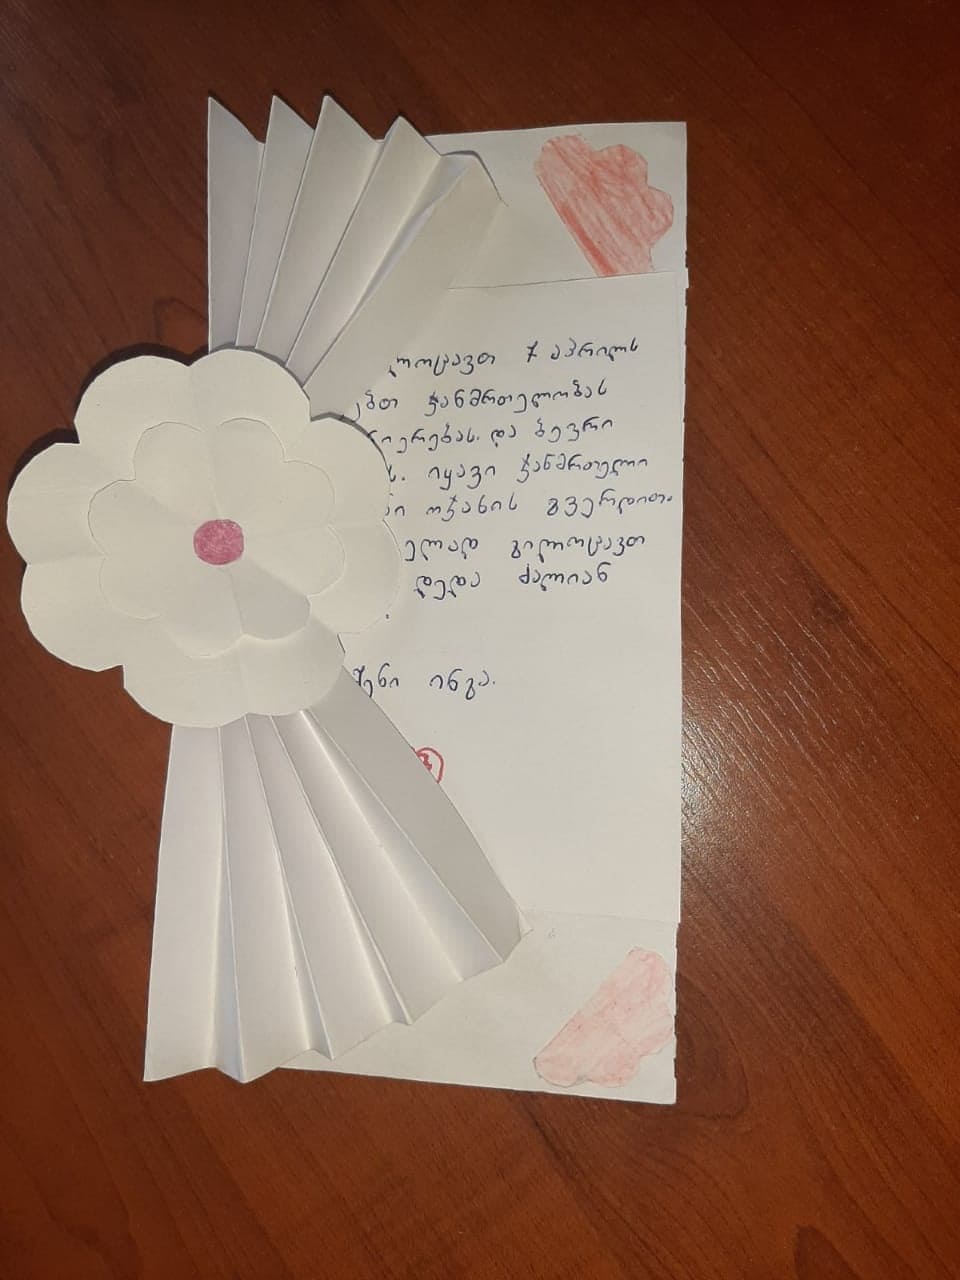 ლოცავთ 7 აპრილს
ებთ ჯანმრთელობას
იერებას. და ბევრი
ს. იყავი ჯანმრთელი
ი ოჯახის გვერდით.
ელად გილოცავთ
დედა ძალიან
შენი ინგა.